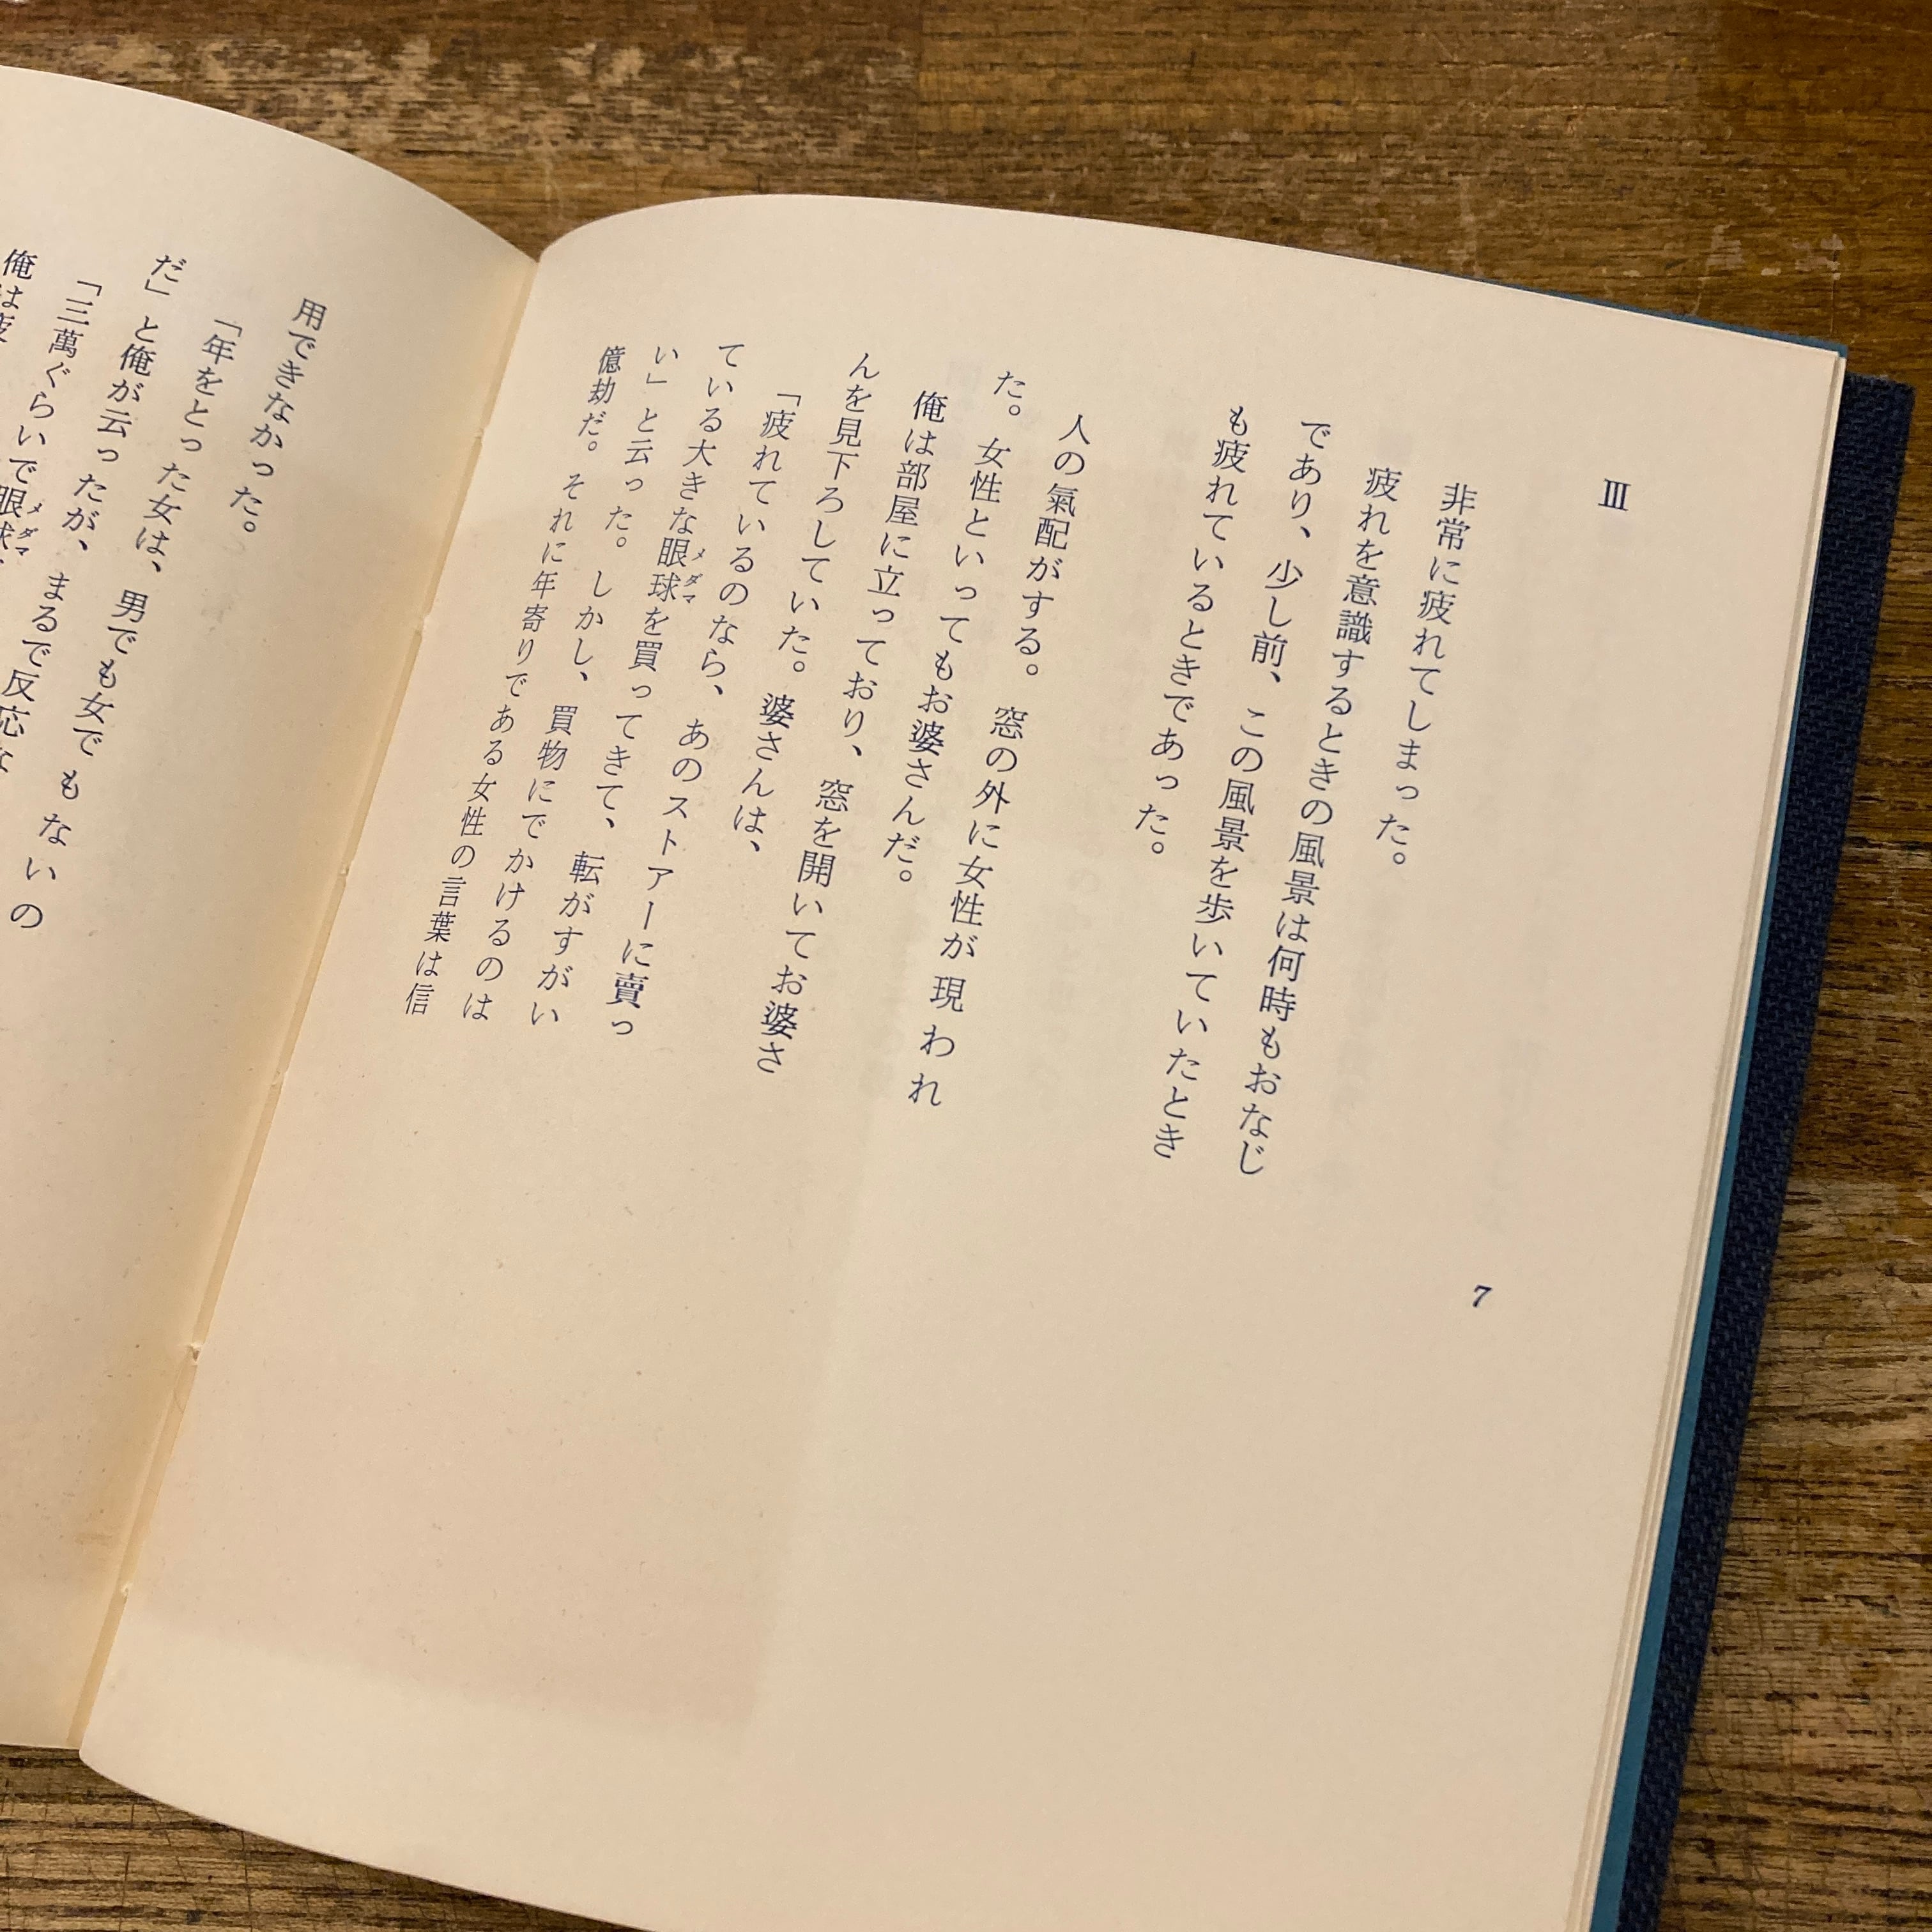 Ⅲ
非常に疲れてしまった。
疲れを意識するときの風景は何時もおなじ
であり、少し前、この風景を歩いていたとき
も疲れているときであった。
人の氣配がする。窓の外に女性が現われ
た。女性といってもお婆さんだ。
俺は部屋に立っており、窓を開いてお婆さ
んを見下ろしていた。婆さんは、
「疲れているのなら、あのストアーに賣っ
ている大きな眼球を買ってきて、転がすがい
メダマ
い」と云った。しかし、買物にでかけるのは
億劫だ。それに年寄りである女性の言葉は信
7
用できなかった。
「年をとった女は、男でも女でもないの
だ」と俺が云ったが、まるで反応な
「三萬ぐらいで眼球
メダマ
俺は疲